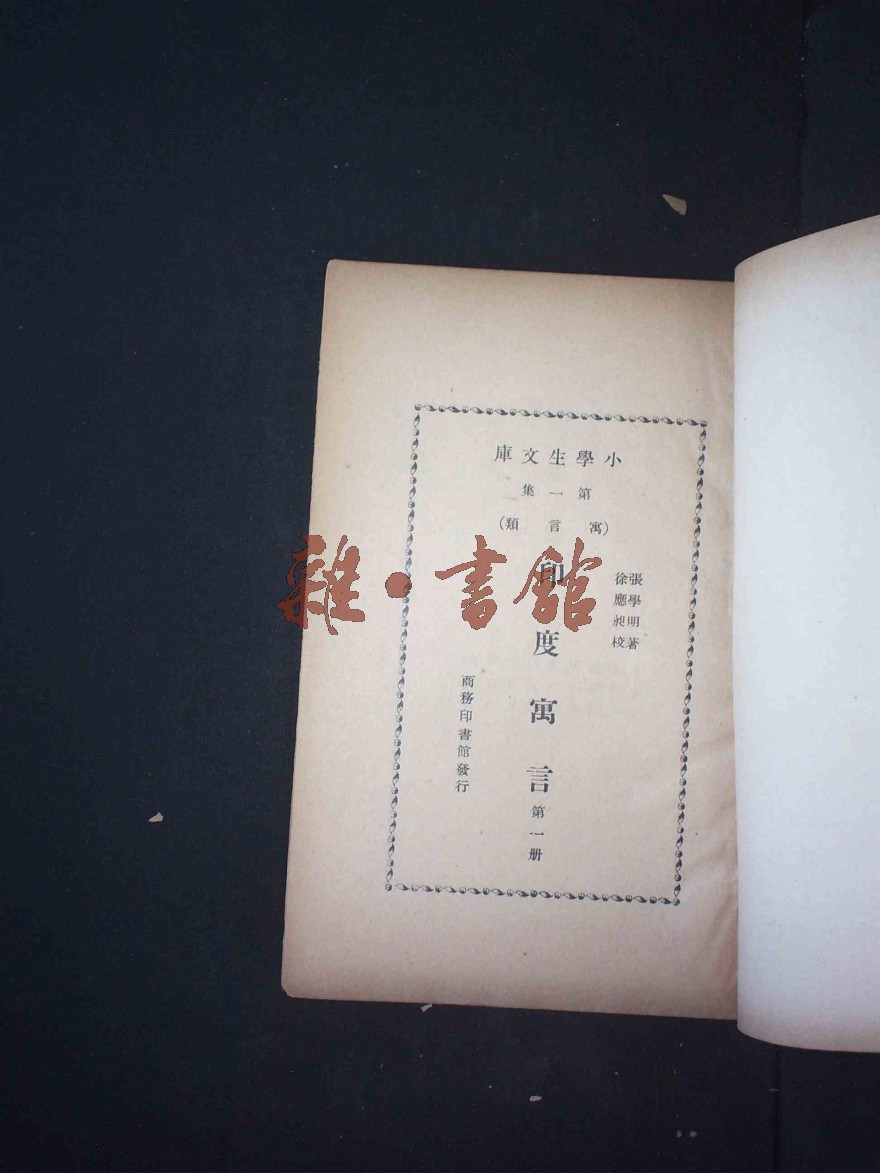 小學生文庫
第一集
(寓言類)
張學明著
徐應昶校
印度寓言 第一册
商務印書館發行
雜·書館